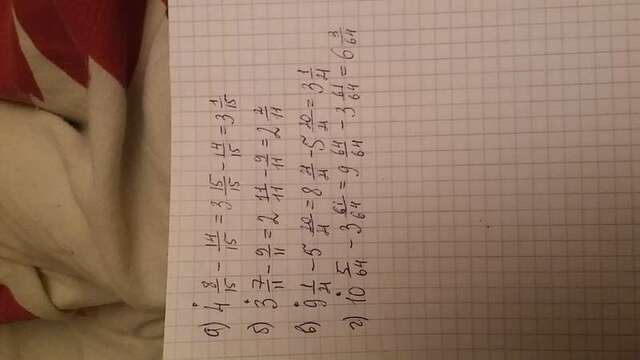 а) 4 8/15 - 14/15 = 3 15/15 - 14/15 = 3 1/15
б) 3 7/11 - 9/11 = 2 11/11 - 9/11 = 2 2/11
в) 9 1/21 - 5 20/21 = 8 21/21 - 5 20/21 = 3 1/21
г) 10 5/64 - 3 61/64 = 9 64/64 - 3 61/64 = 6 3/64